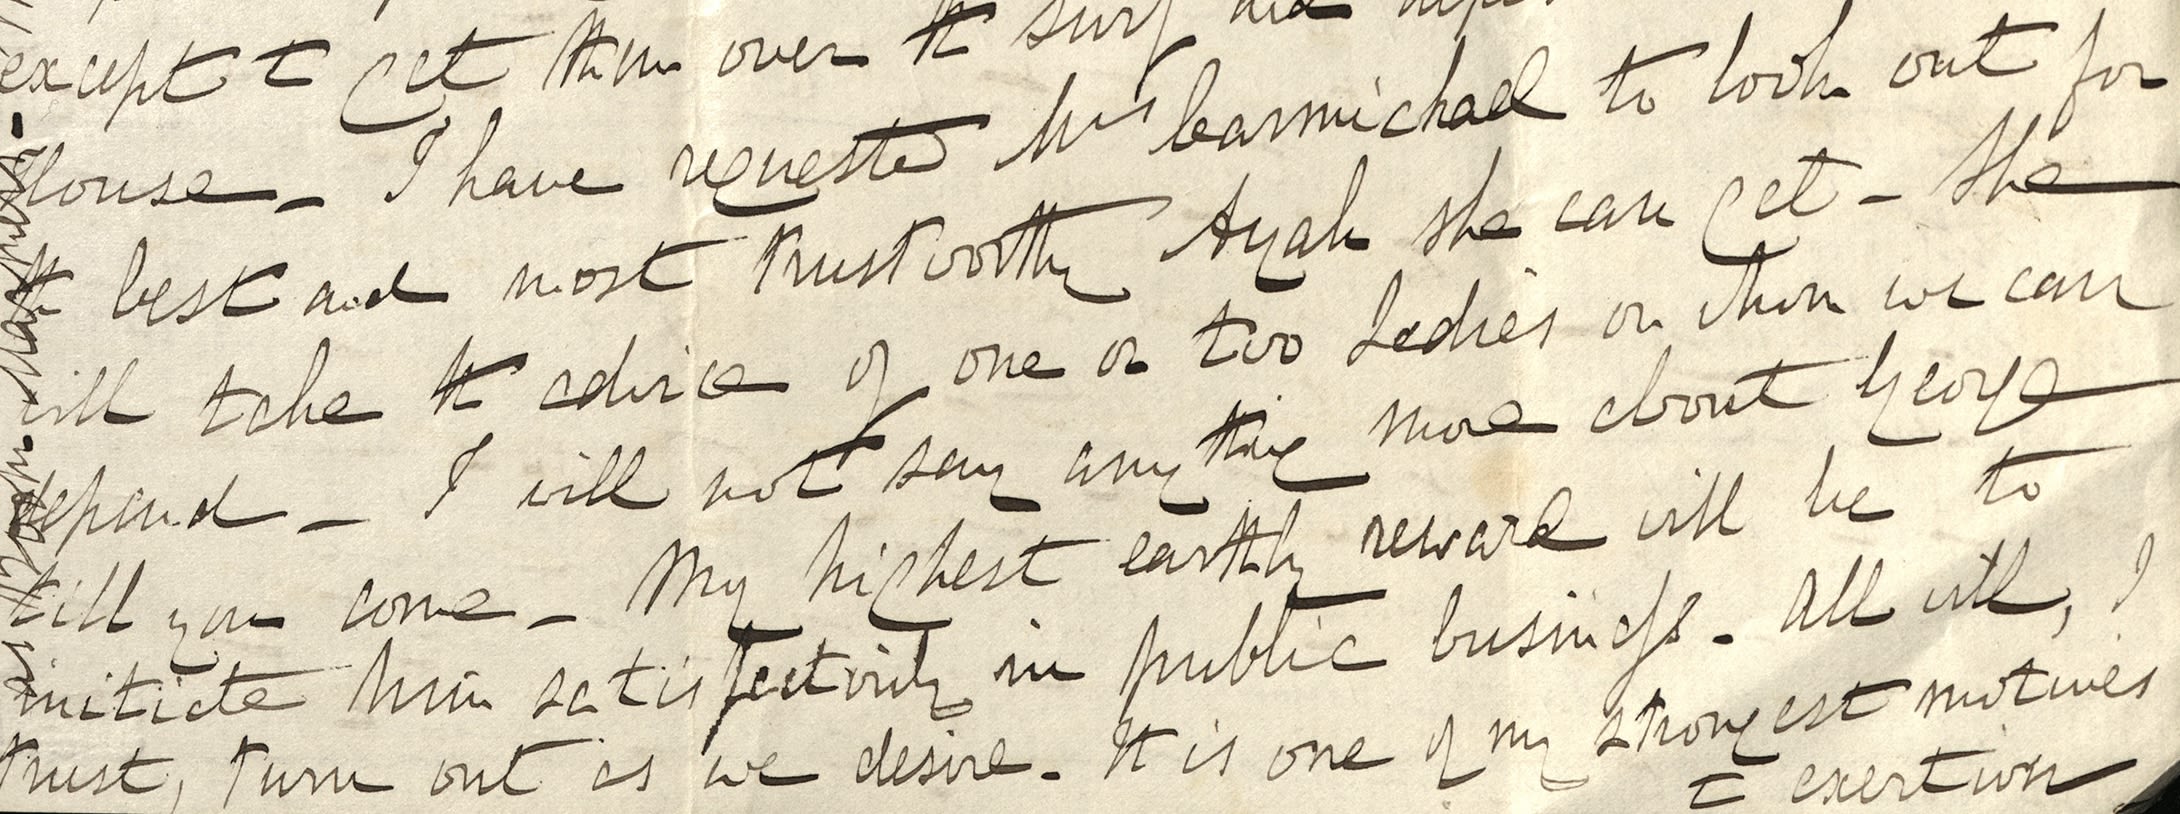 except to get them over the surf and
House _ I have requested Mrs Carmichael to look out for
the best and most trustworthy Ayah she can get - She
will take the advice of one or two Ladies on whom we can
depend _ I will not say anything more about George
till you come _ My highest earthly reward will be to
initiate him satisfactorily in public business. All will, I
trust, turn out as we desire. It is one of my strongest motives
to exertion